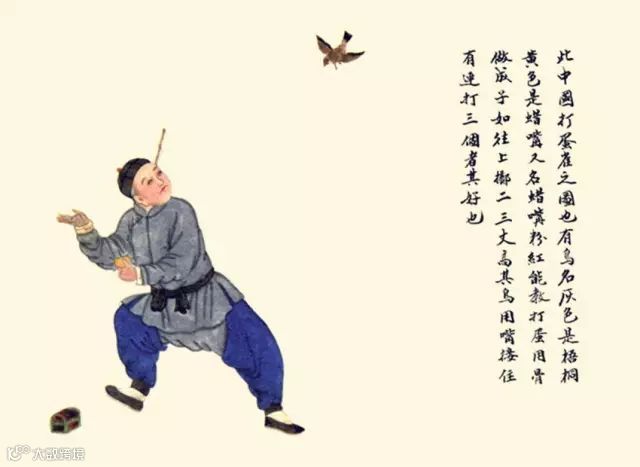 此中國打蛋雀之圖也有鳥名灰色是梧桐
黄色是蜡嘴又名蜡嘴粉紅能教打蛋用骨
做成子如往上擲二三丈高其鳥用嘴接住
有連打三個者其好也
大数跨境